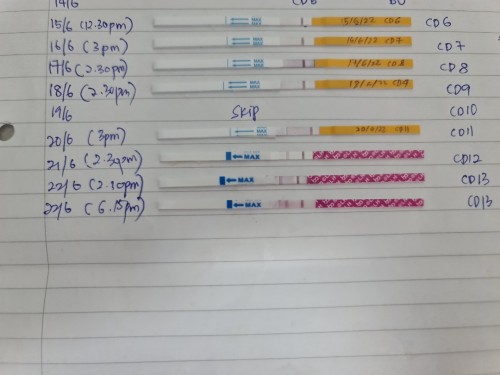 14/6 CD5
15/6 (12.30pm) MAX MAX 15/6/22 CD6 CD6
16/6 (3pm) MAX MAX 16/6/22 CD7 CD7
17/6 (2.30pm) MAX MAX 17/6/22 CD8 CD8
18/6 (2.30pm) MAX MAX 18/6/22 CD9 CD9
19/6 SKIP CD10
20/6 (3pm) MAX MAX 20/6/22 CD11 CD11
21/6 (2.30pm) MAX CD12
22/6 (2.10pm) MAX CD13
22/6 (6.15pm) MAX CD13